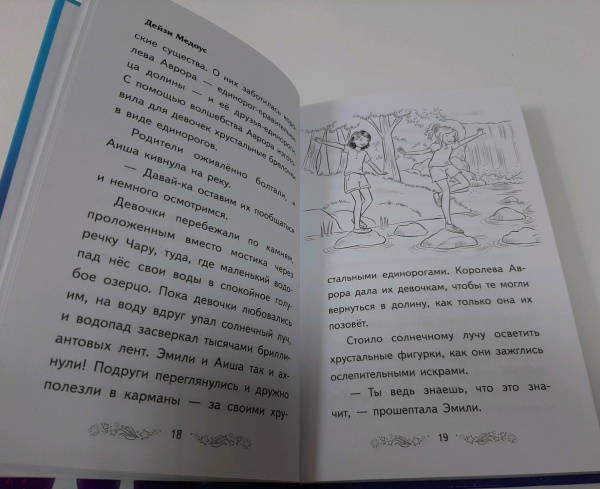 Дейзи Медоус
ские существа. О них заботилась коро-
лева Аврора — единорог-правительни-
ца долины — и её друзья-единороги.
С помощью волшебства Аврора изгото-
вила для девочек хрустальные брелочки
в виде единорогов.
Родители оживлённо болтали, и
Аиша кивнула на реку.
— Давай-ка оставим их пообщаться
и немного осмотримся.
Девочки перебежали по камням,
проложенным вместо мостика через
речку Чару, туда, где маленький водо-
пад нёс свои воды в спокойное голу-
бое озерцо. Пока девочки любовались
им, на воду вдруг упал солнечный луч,
и водопад засверкал тысячами брилли-
антовых лент. Эмили и Аиша так и ах-
нули! Подруги переглянулись и дружно
полезли в карманы — за своими хру-
18
стальными единорогами. Королева Ав-
рора дала их девочкам, чтобы те могли
вернуться в долину, как только она их
позовёт.
Стоило солнечному лучу осветить
хрустальные фигурки, как они зажглись
ослепительными искрами.
— Ты ведь знаешь, что это зна-
чит, — прошептала Эмили.
19